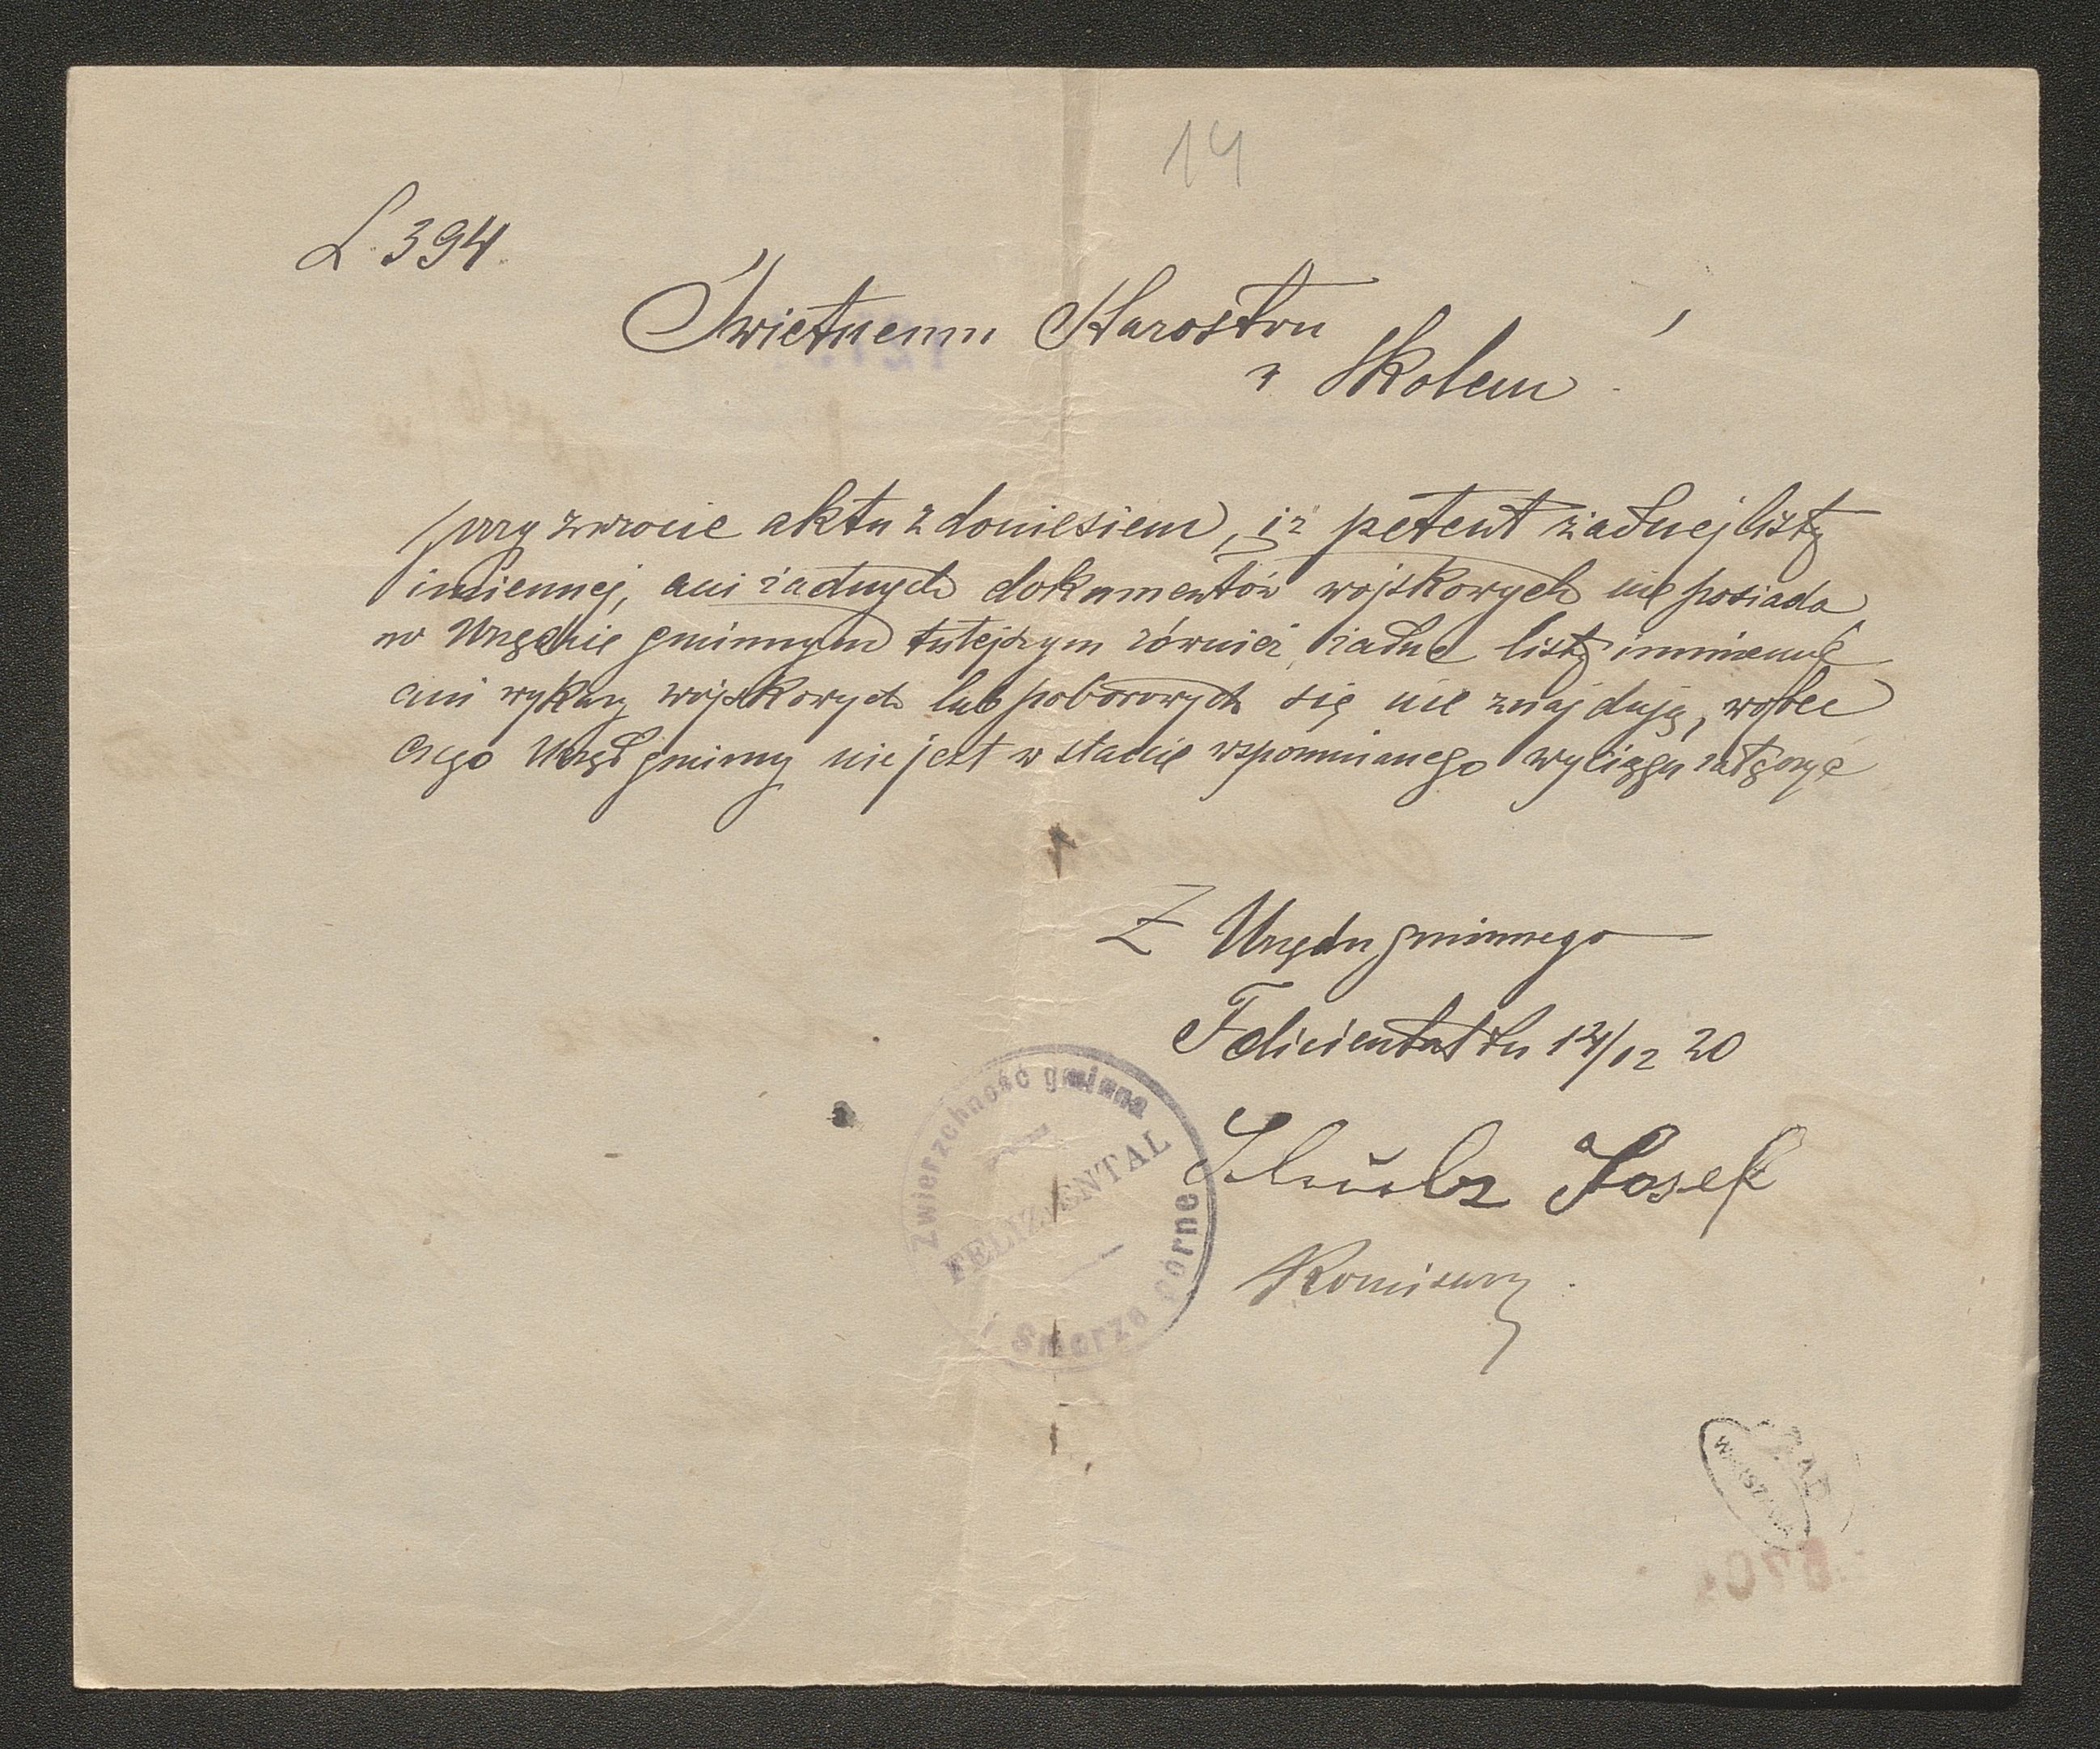 14
L. 394.
Świetnemu Starostwu
w Skolem
przy zwrocie aktu z doniesiem, iż petent żadnej listy
imiennej, ani żadnych dokumentów wojskowych nie posiada
w Urzędzie gminnym tutejszym również żadne listy imienne
ani wykazy wojskowych lub poborowych się nie znajdują, wobec
czego Urząd gminny nie jest w stanie wspomnianego wyciągu załączyć
Z Urzędu gminnego
Felicientalu 14/12 20
Josef
Komisarz.
Zwierzchność gminna
FELIZIENTAL
Smorze górne
AGAD
WARSZAWA